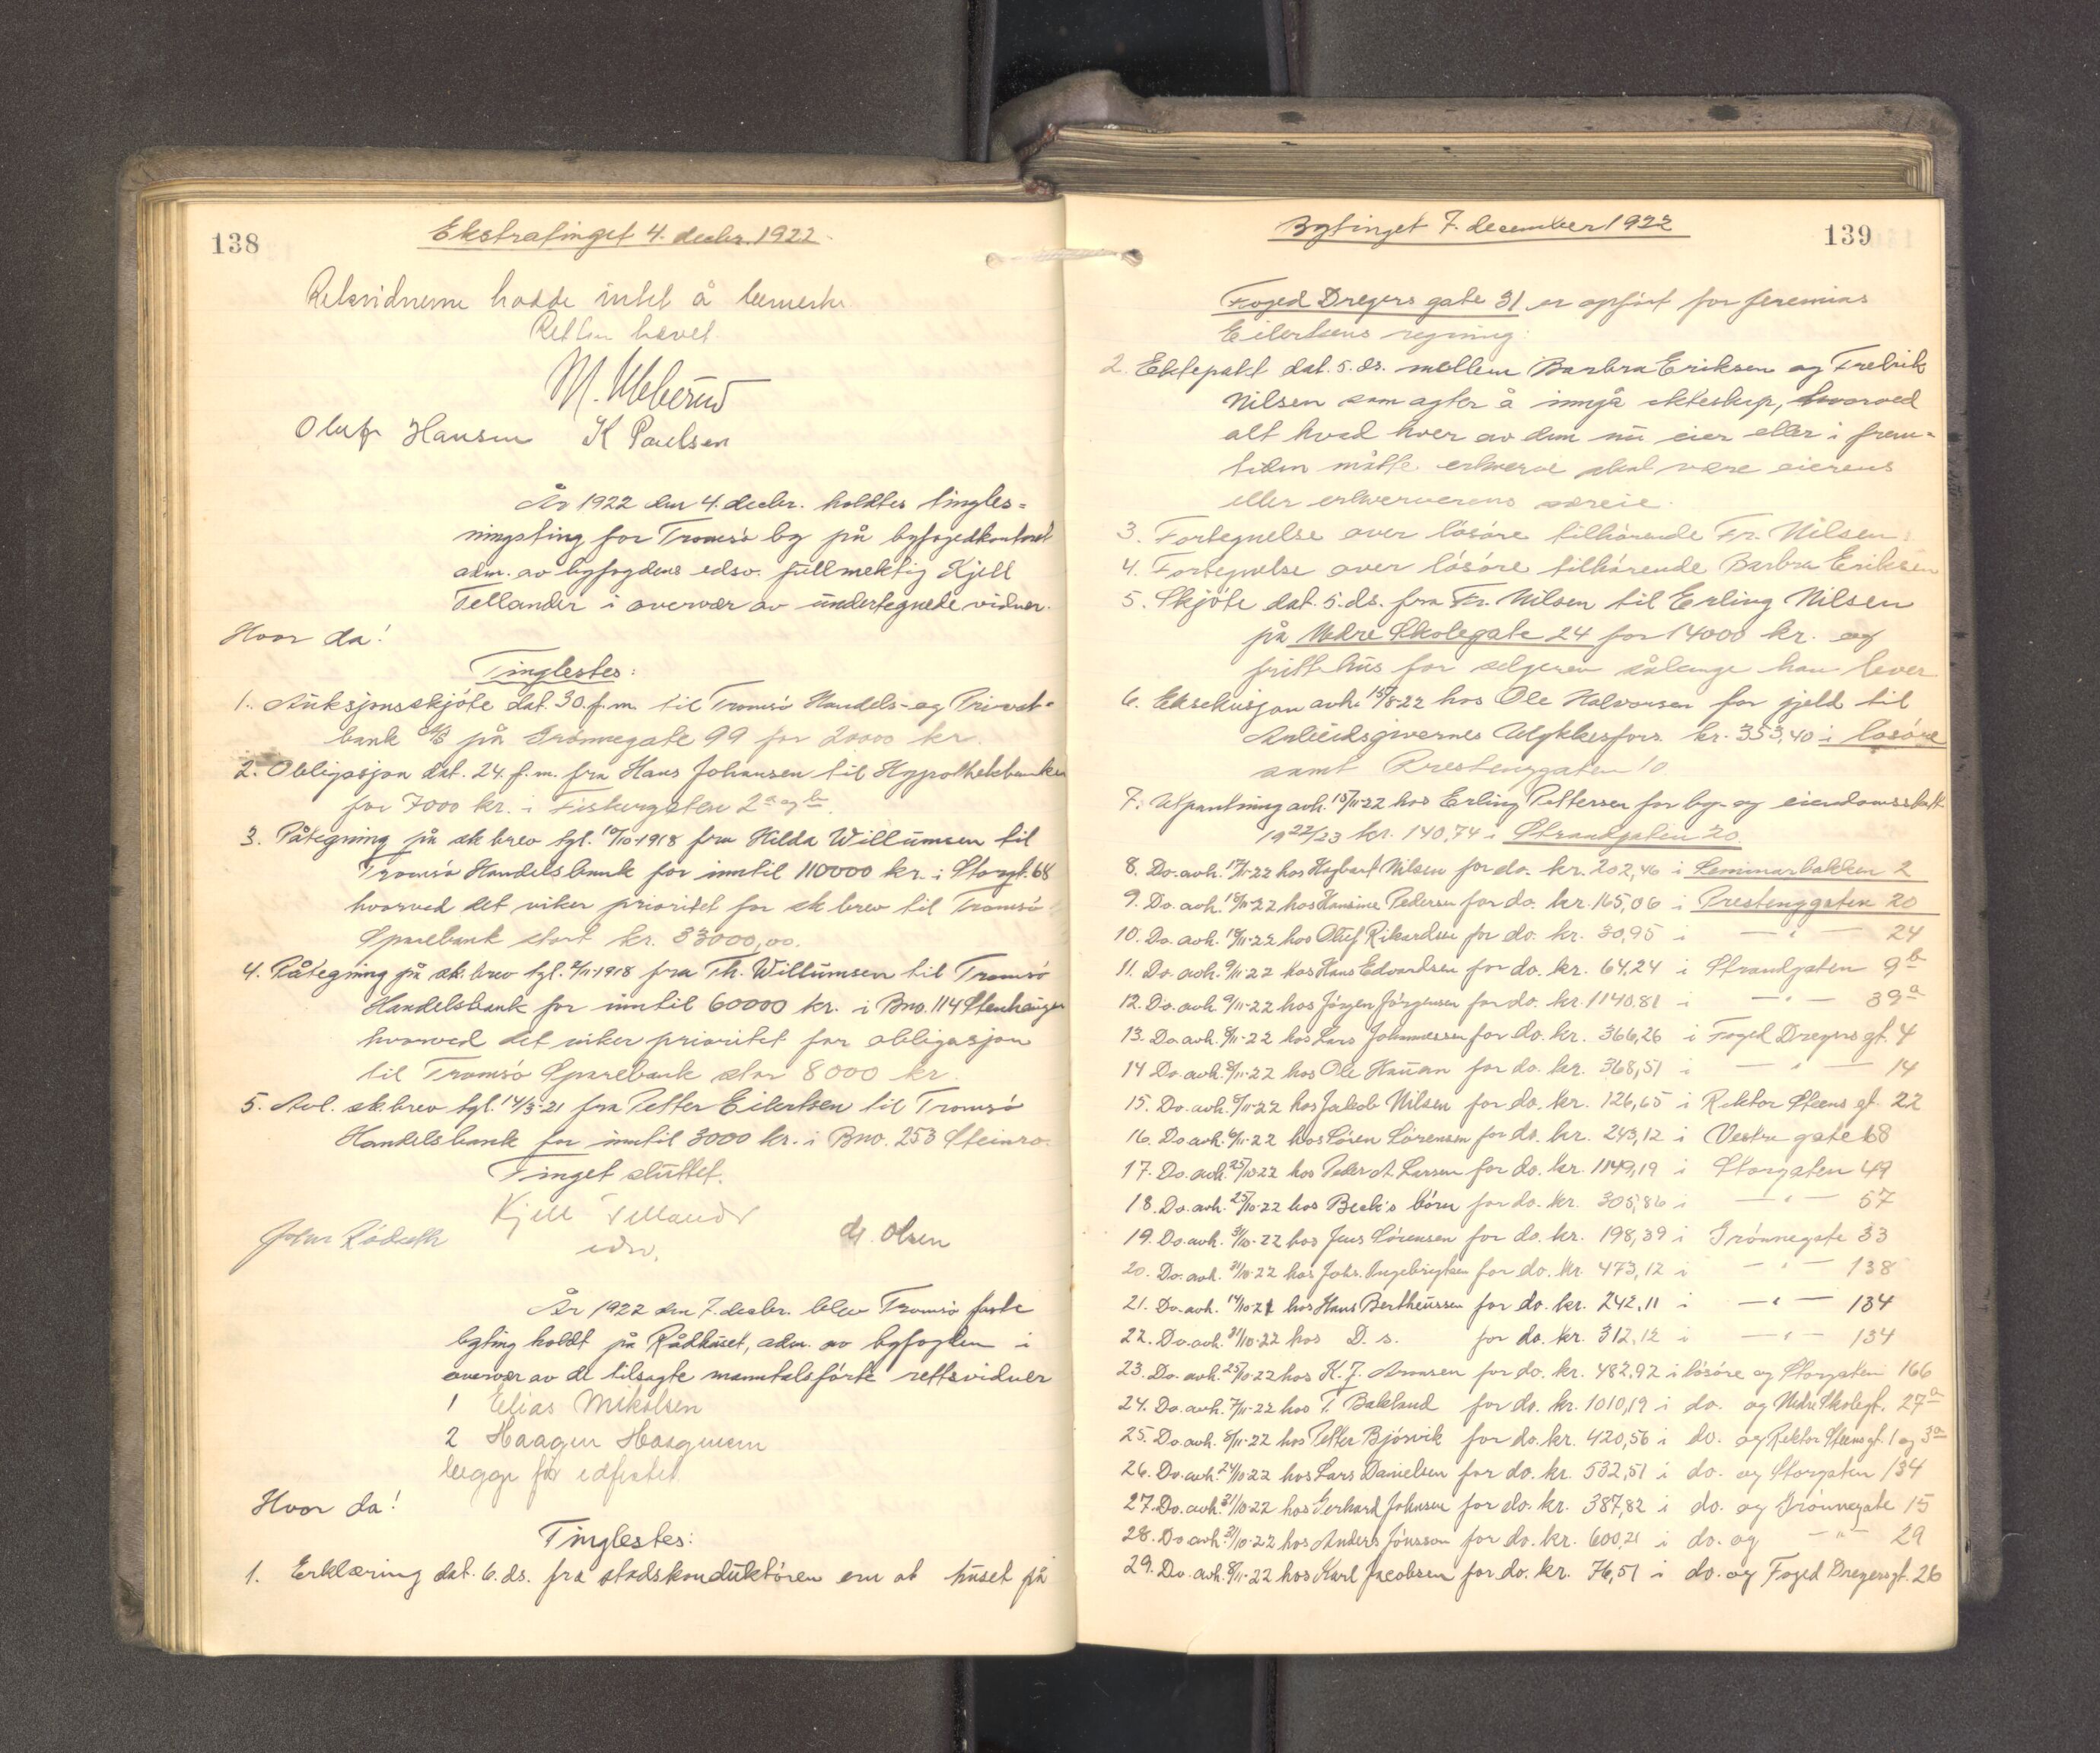 138
Ekstratinget 4. decbr. 1922.
Retsvidnerne hadde intet å bemerke.
Retten hævet.
Oluf Hansen K Paulsen
År 1922 den 4. decbr. holdtes tingles=
ningsting for Tromsö by på byfogedkontoret
adm. av byfogdens edsv. fullmektig Kjell
Tellander i overvær av undertegnede vidner.
Hvor da!
Tinglestes:
1. Auksjonsskjöte dat. 30. f.m. til Tromsö Handels- og Privat-
bank A/S på Grönnegate 99 for 20000 kr.
2. Obligasjon dat. 24. f.m. fra Hans Johansen til Hypothekbanken
for 7000 kr. i Fiskergaten 2a og b.
3. Påtegning på sk.brev tgl. 10/10-1918 fra Hilda Willumsen til
Tromsö Handelsbank for inntil 110000 kr. i Storgt. 68
hvorved det viker prioritet for sk.brev til Tromsö
Sparebank stort kr. 33000,00.
4. Påtegning på sk.brev tgl. 2/11-1918 fra Th. Willumsen til Tromsö
Handelsbank for inntil 60000 kr. i Bno. 114 Stenhaugen
hvorved det viker prioritet for obligasjon
til Tromsö Sparebank stor 8000 kr.
5. Avl. sk.brev tgl. 14/3-21 fra Petter Eilertsen til Tromsö
Handelsbank for inntil 3000 kr. i Bno. 253 Steinro.
Tinget sluttet.
Kjell Tellander
edsv.
Olsen
År 1922 den 7. decbr. blev Tromsö faste
byting holdt på Rådhuset, adm. av byfogden i
overvær av de tilsagte manntalsförte rettsvidner
1 Elias Mikalsen
2 Haagen Haagensen
begge för edfestet.
Hvor da!
Tinglestes:
1. Erklæring dat. 6. ds. fra stadskonduktören om at huset på
Bytinget 7. december 1922
139
Foged Dreyers gate 31 er opfört for Jeremias
Eilertsens regning.
2. Ektepakt dat. 5. ds. mellem Barbra Eriksen og Fredrik
Nilsen som agter å inngå ekteskap, hvorved
alt hvad hver av dem nu eier eller i frem-
tiden måtte erhverve skal være eierens
eller erhververens særeie.
3. Fortegnelse over lösöre tilhörende Fr. Nilsen.
4. Fortegnelse over lösöre tilhörende Barbra Eriksen
5. Skjöte dat. 5. ds. fra Fr. Nilsen til Erling Nilsen
på Nedre Skolegate 24 for 14000 kr. og
fritt hus for selgeren sålenge han lever
6. Eksekusjon avh. 15/8-22 hos Ole Halvorsen for gjeld til
Arbeidsgivernes Ulykkesfors. kr. 353,40 i lösöre
samt Prestenggaten 10
7. Utpantning avh. 15/11-22 hos Erling Pettersen for by- og eiendomsskatt
1922/23 kr. 140,74 i Strandgaten 20.
8. Do. avh. 17/11-22 hos Hagbart Nilsen for do. kr. 202,46 i Seminarbakken 2
9. Do. avh. 18/11-22 hos Hansine Pedersen for do. kr. 165,06 i Prestenggaten 20
10. Do. avh. 18/11-22 hos Oluf Rikardsen for do. kr. 30,95 i — " — 24
11. Do. avh. 9/11-22 hos Hans Edvardsen for do. kr. 64,24 i Strandgaten 9b
12. Do. avh. 9/11-22 hos Jörgen Jörgensen for do. kr. 1140.81 i — " — 39a
13. Do. avh. 8/11-22 hos Lars Johannessen for do. kr. 366,26 i Foged Dreyers gt. 4
14 Do. avh. 8/11-22 hos Ole Hauan for do. kr. 368,51 i — " — 14
15. Do. avh. 8/11-22 hos Jakob Nilsen for do. kr. 126,65 i Rektor Steens gt. 22
16. Do. avh. 6/11-22 hos Sören Sörensen for do. kr. 243,12 i Vestre gate 68
17. Do. avh. 25/10-22 hos Peder A. Larsen for do. kr. 1149,19 i Storgaten 49
18. Do. avh. 25/10-22 hos Beck's börn for do. kr. 305,86 i — " — 57
19. Do. avh. 31/10-22 hos Jens Sörensen for do. kr. 198,39 i Grönnegate 33
20. Do. avh. 31/10-22 hos Johs. Ingebrigtsen for do. kr. 473,12 i — " — 138
21. Do. avh. 14/10-21 hos Hans Bertheussen for do. kr. 242,11 i — " — 134
22. Do. avh. 31/10-22 hos D. s. for do. kr. 312,12 i — " — 134
23. Do. avh. 25/10-22 hos K. J. Aronsen for do. kr. 482,92 i lösöre og Storgaten 166
24. Do. avh. 7/11-22 hos T. Bakland for do. kr. 1010,19 i do. og Nedre Skolegt. 27a
25. Do. avh. 8/11-22 hos Petter Björvik for do. kr. 420,56 i do. og Rektor Steensgt. 1 og 3a
26. Do. avh. 24/10-22 hos Lars Danielsen for do. kr. 532,51 i do. og Storgaten 134
27. Do. avh. 31/10-22 hos Gerhard Johnsen for do. kr. 387,82 i do. og Grönnegate 15
28. Do. avh. 31/10-22 hos Anders Jönsson for do. kr. 600,21 i do. og — " — 29
29. Do. avh. 8/11-22 hos Karl Jacobsen for do. kr. 76,51 i do. og Foged Dreyersgt. 26